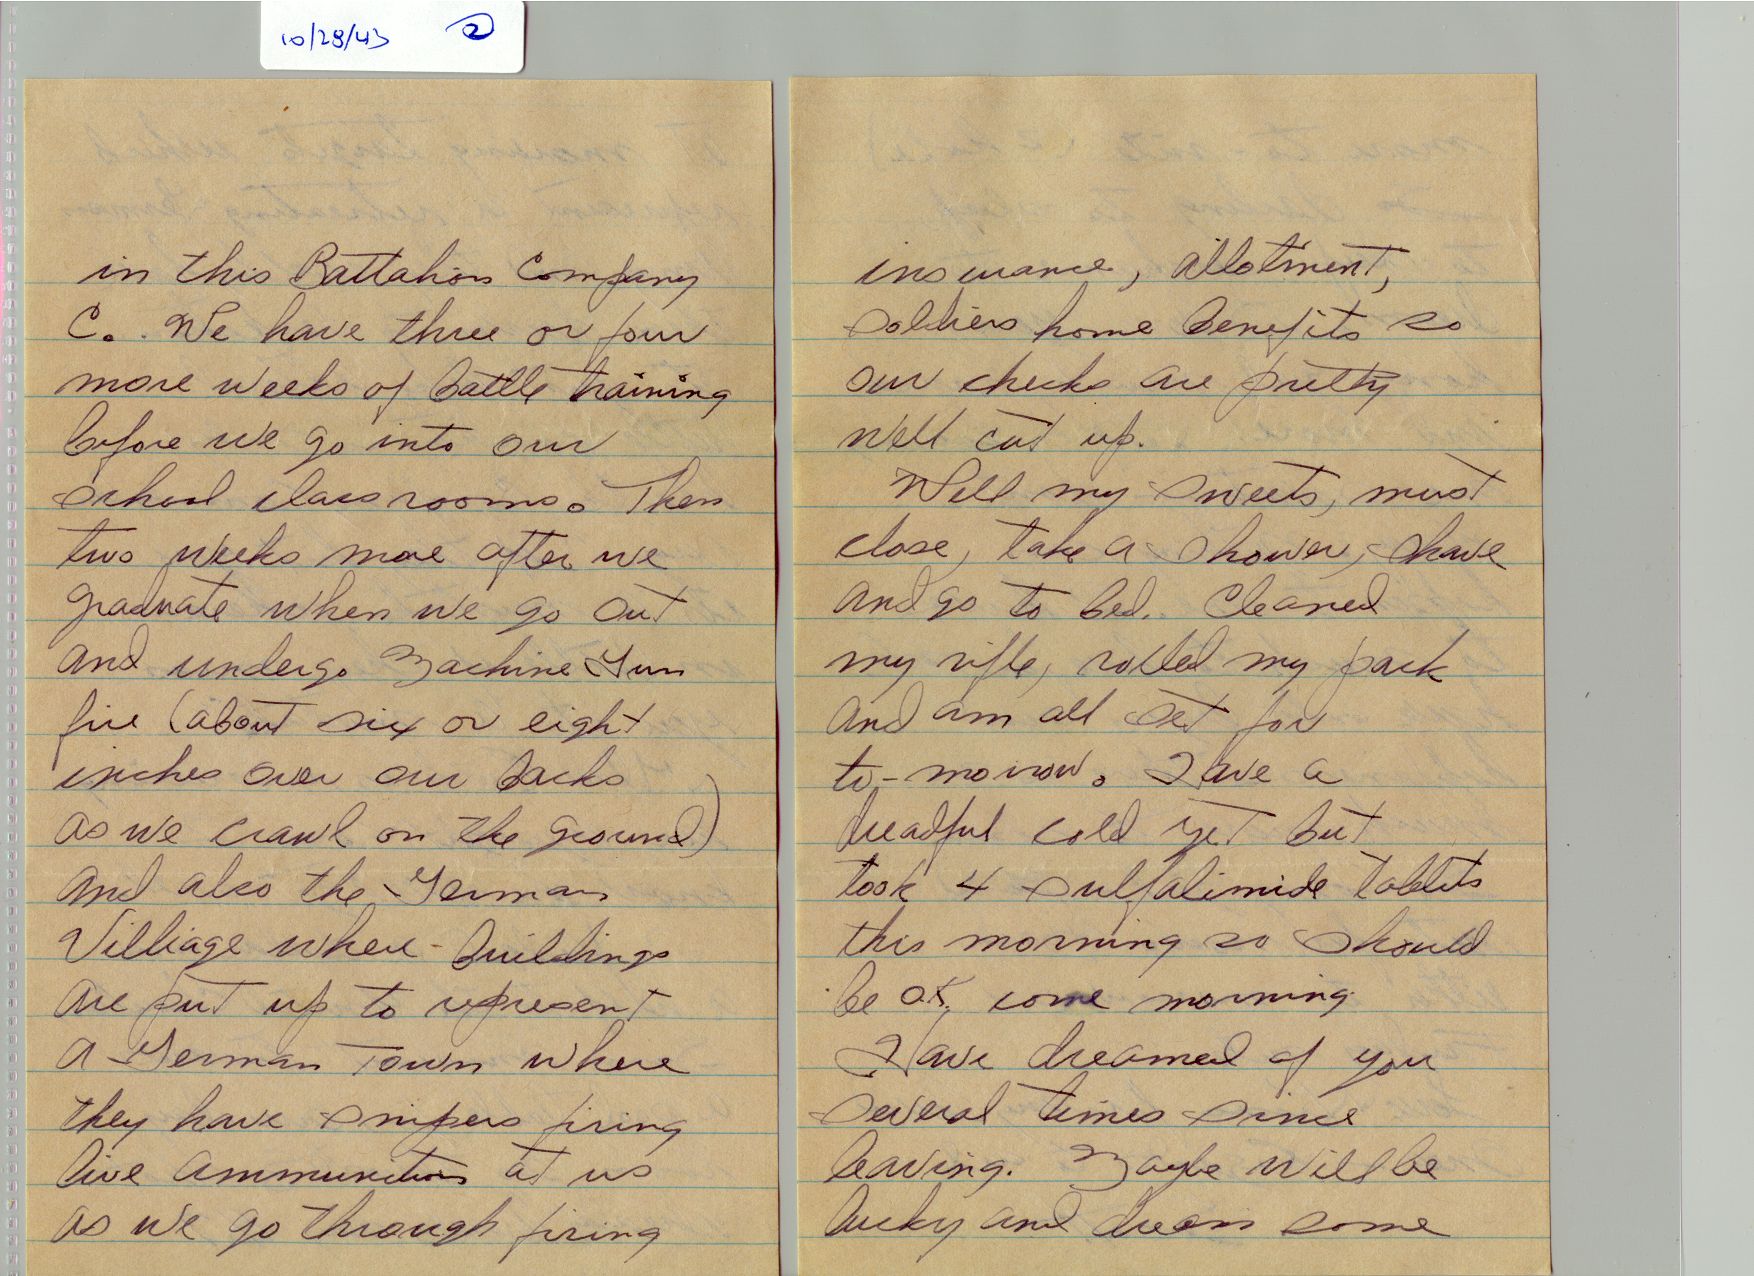 10/28/43 2
in this Battalion Company
C.. We have three or four
more weeks of battle training
before we go into our
school classrooms. Then
two weeks more after we
graduate when we go out
and undergo Machine Gun
fire (about six or eight
inches over our backs
as we crawl on the ground)
and also the German
Villiage where buildings
are put up to represent
a German Town where
they have snipers firing
live ammunition at us
as we go through firing
insurance, allotment,
soldiers home benefits so
our checks are pretty
well cut up.
Well my sweets, must
close, take a shower, shave
and go to bed. Cleaned
my rifle, rolled my pack
and am all set for
to-morrow. Have a
dreadful cold yet but
took 4 sulfalimide tablets
this morning so should
be O.K. come morning.
Have dreamed of you
several times since
leaving. Maybe will be
lucky and dream some